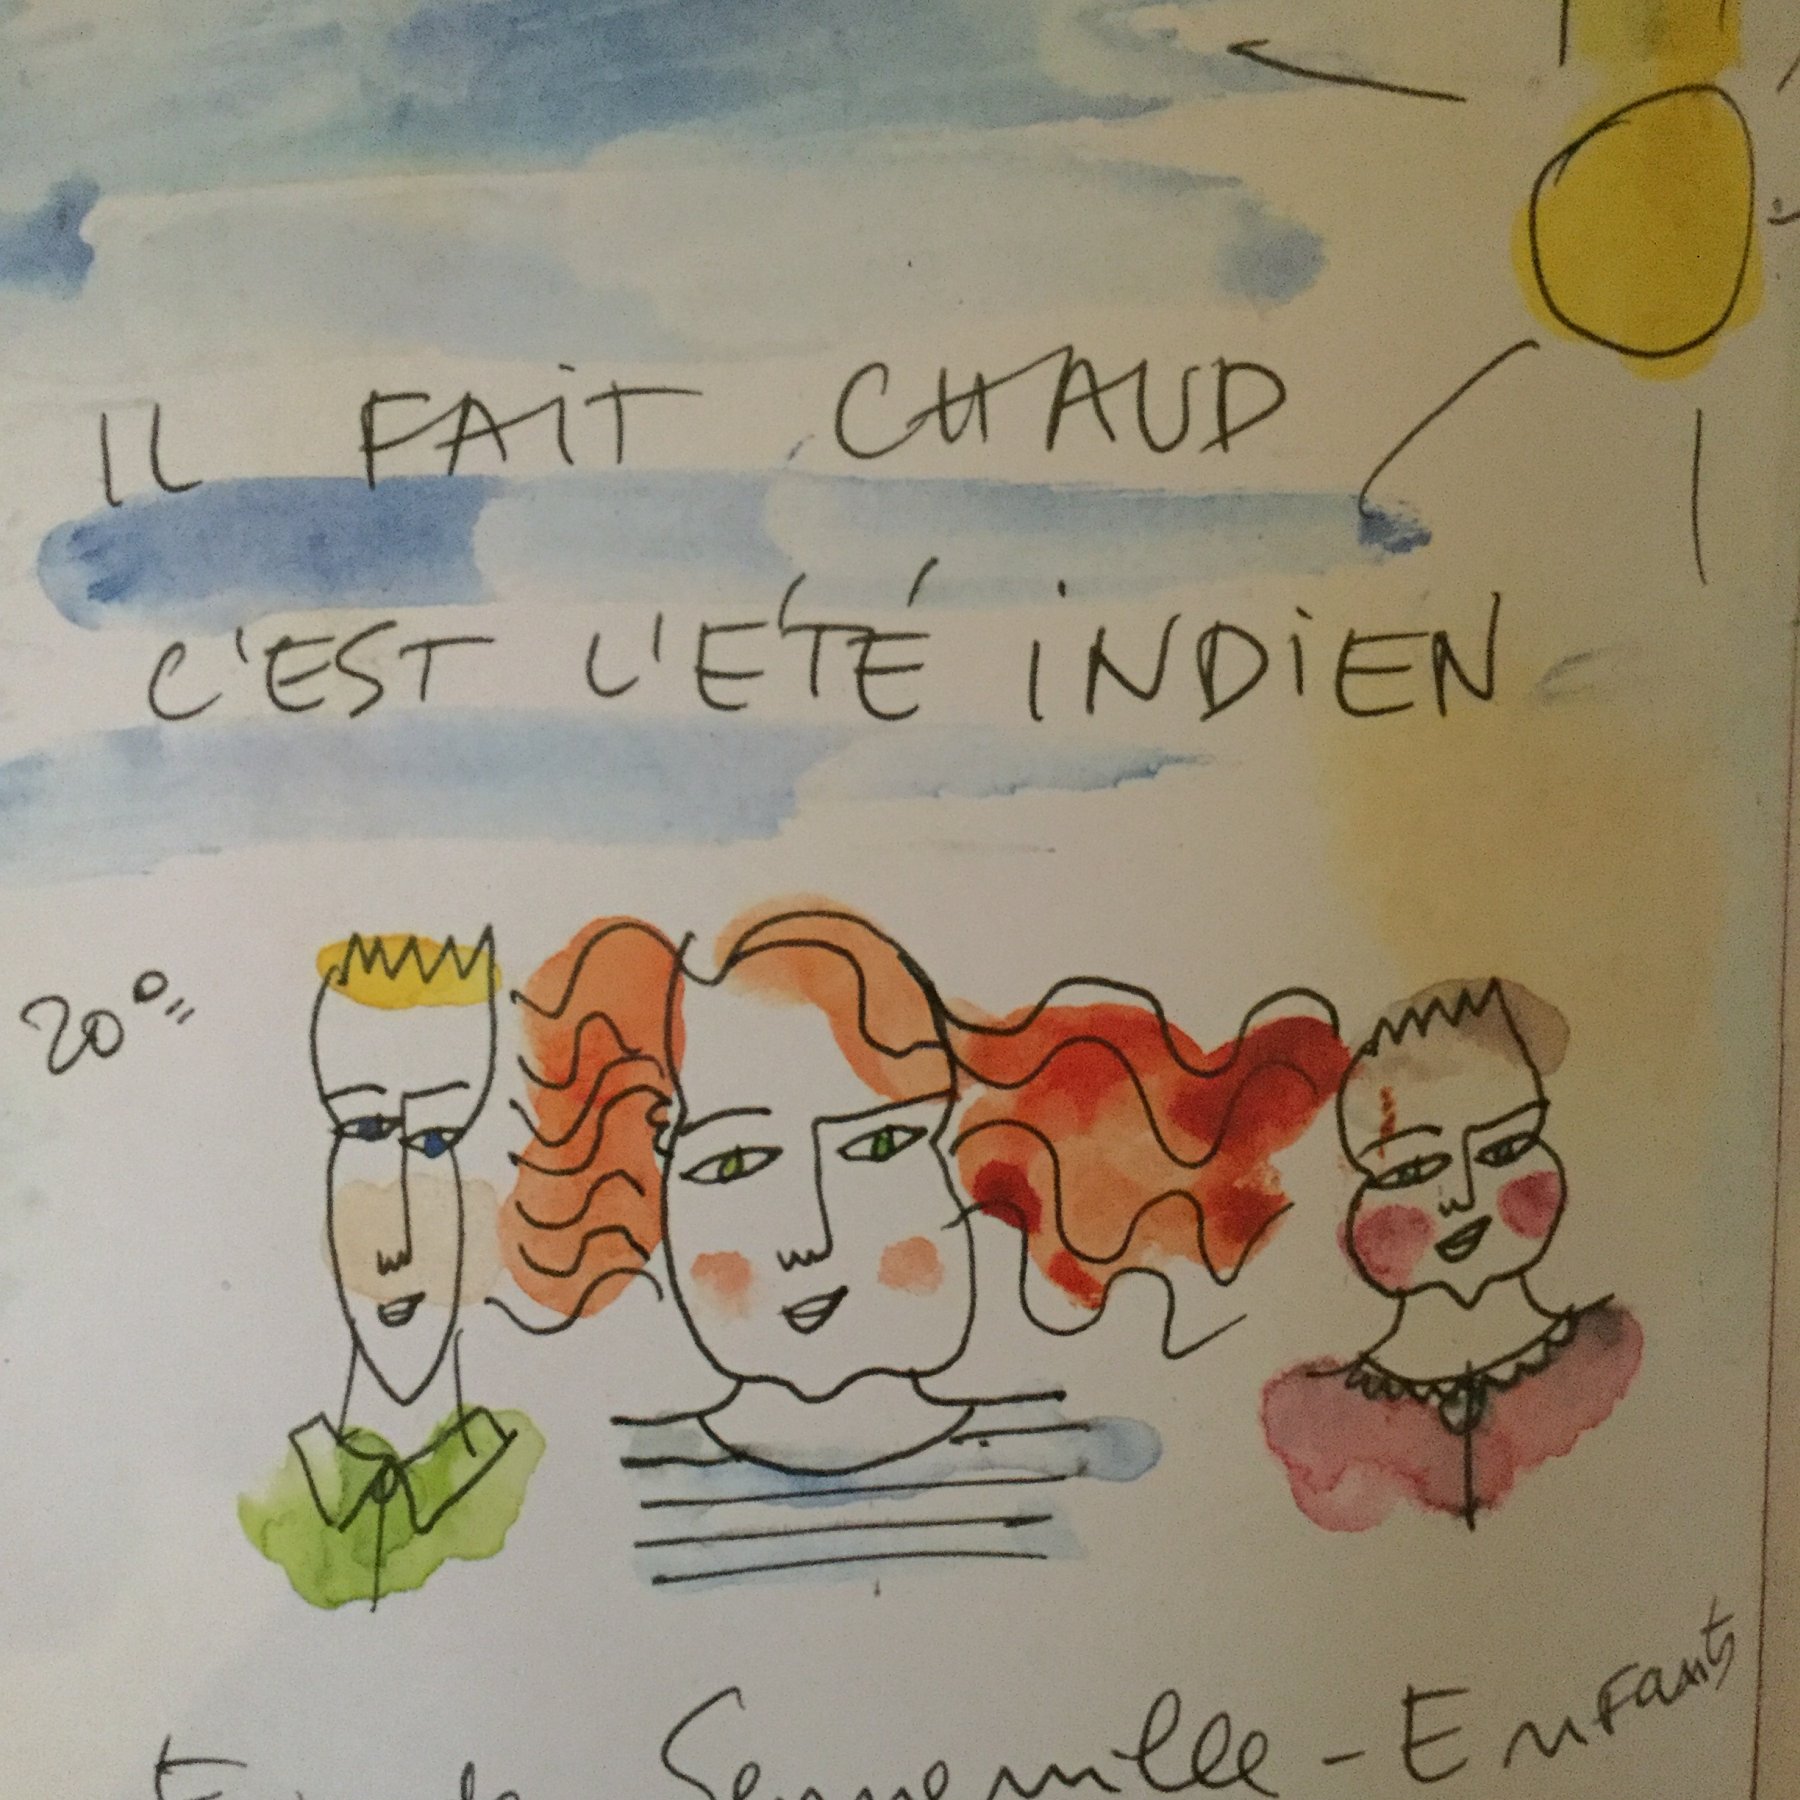 IL FAIT CHAUD
C'EST L'ÉTÉ INDIEN
20°
Senneville-Enfants